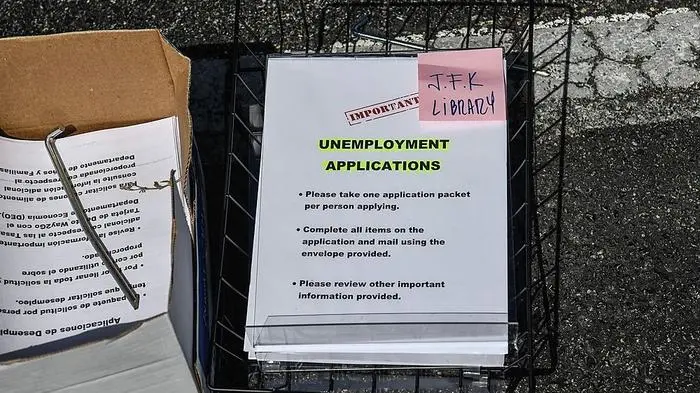 J.F.K
LIBRARY
IMPORTANT
UNEMPLOYMENT
APPLICATIONS
• Please take one application packet
per person applying.
• Complete all items on the
application and mail using the
envelope provided.
• Please review other important
information provided.
Aplicaciones de Desempl
paquete de solicitud por pers
que solicitar desempleo.
• Por favor llenar toda la solicitud y
por utilizando el sobre
proporcionado.
• Revise la información importante
adicional con respecto a las Tasa
Tarjeta de Way2Go con el
Economía (DEO).
solicitar de alimentos
consulta la información adicional
con respecto al
Departamento y Familias